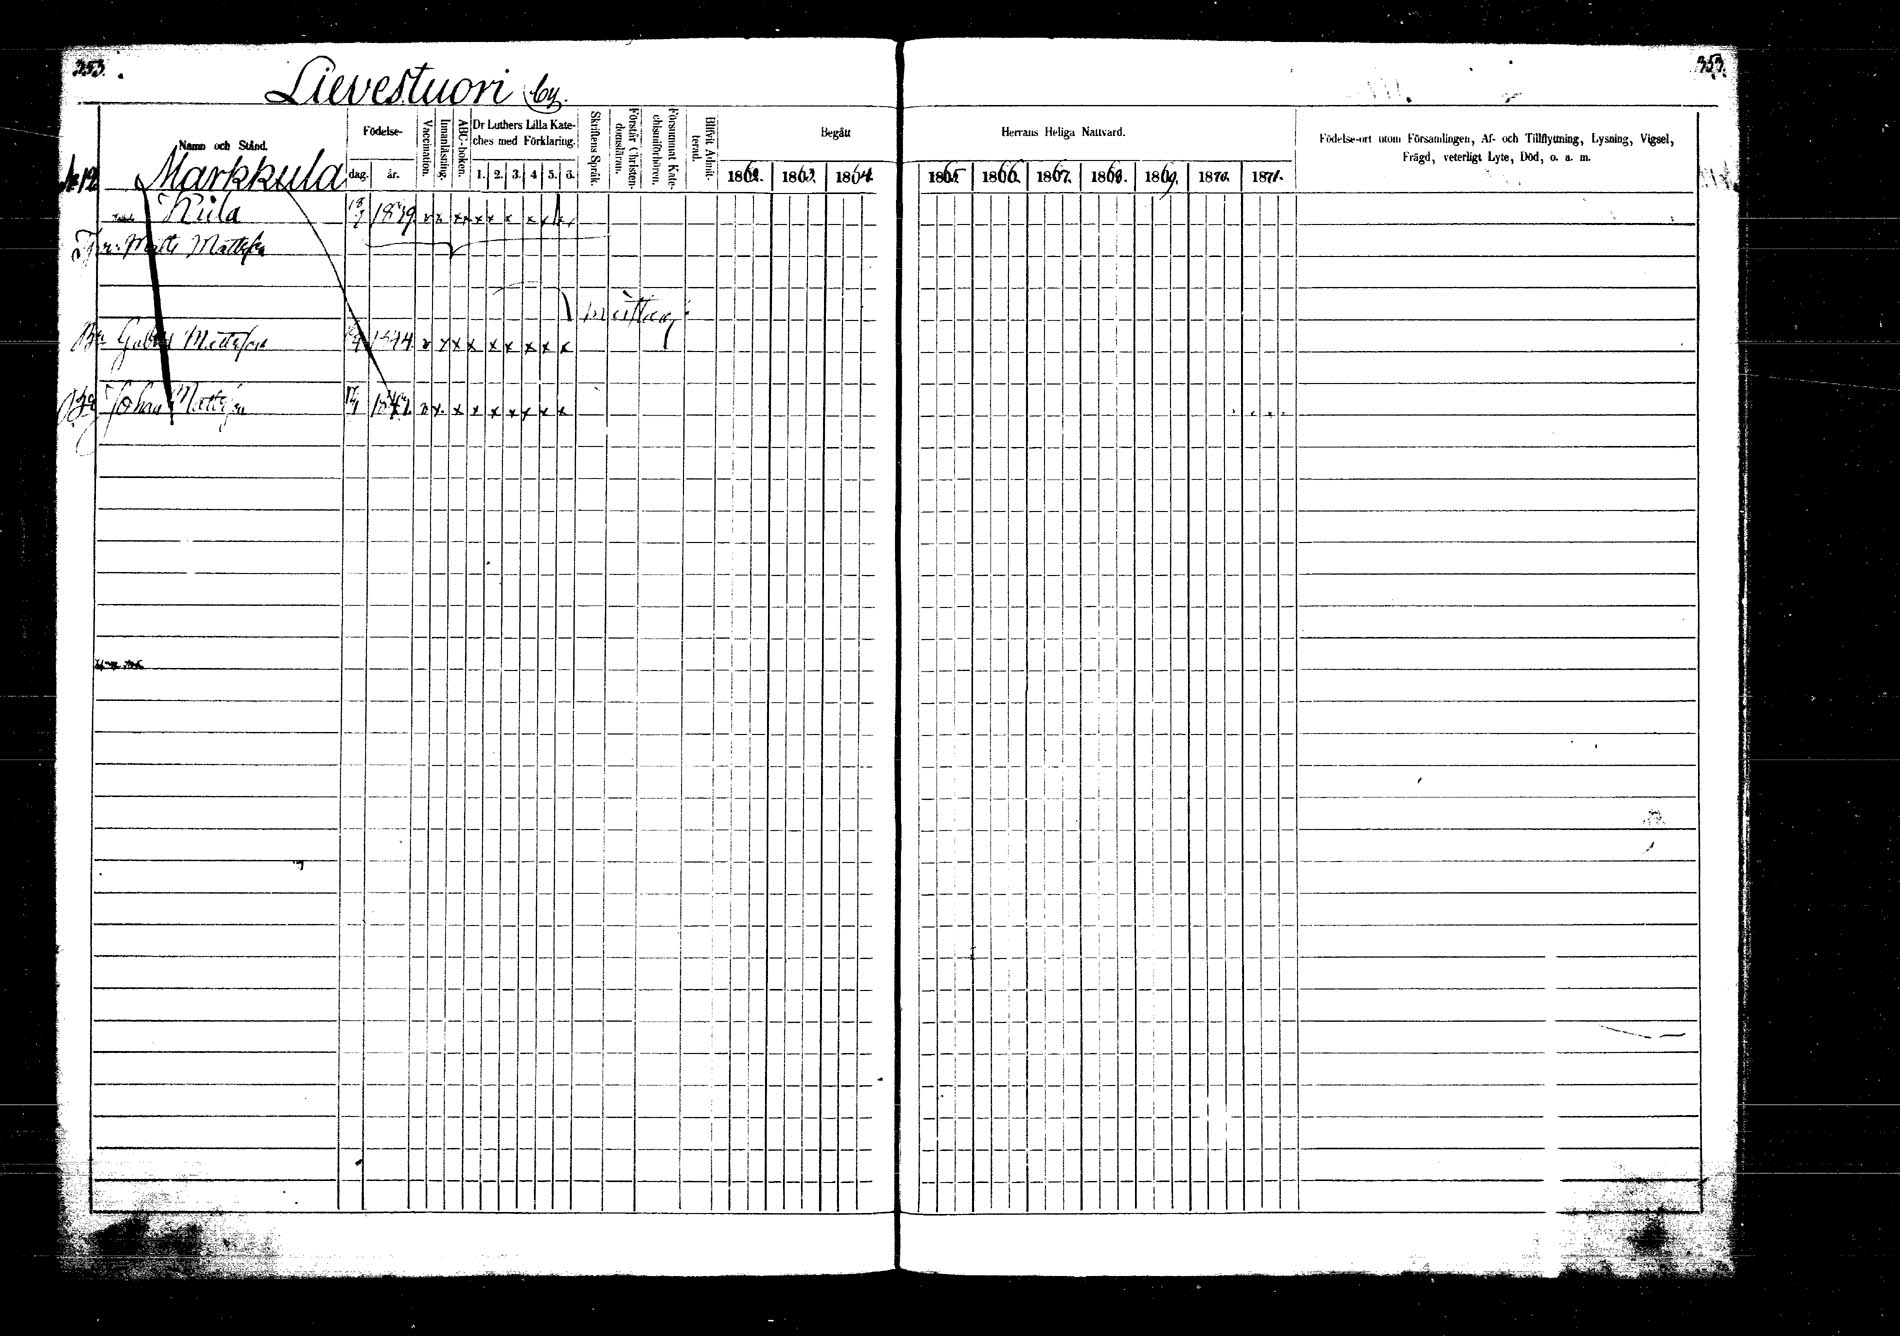 353.
353.
Lievestuori by.
Namn och Stånd.
Födelse-
dag.
år.
Vaccination.
Innanläsning.
ABC-boken.
Dr Luthers Lilla Kate-
ches med Förklaring.
1. 2. 3. 4 5. 6.
Skriftens Språk.
Förstår Christen-
domsläran.
Försummat Kate-
chismiförhören.
Blifvit Admit-
terad.
Begått
Herrans Heliga Nattvard.
1862. 1863. 1864
1865 1866. 1867. 1868. 1869. 1870. 1871.
Födelse-ort utom Församlingen, Af- och Tillflyttning, Lysning, Vigsel,
Frägd, veterligt Lyte, Död, o. a. m.
№ 12 Markkula
Kiila 1839 v x x x x x x x x x
Matts Mattsson
Gabriel Mattsson 1844 v x x x x x x x x
Johan Mattsson v x x x x x x x x